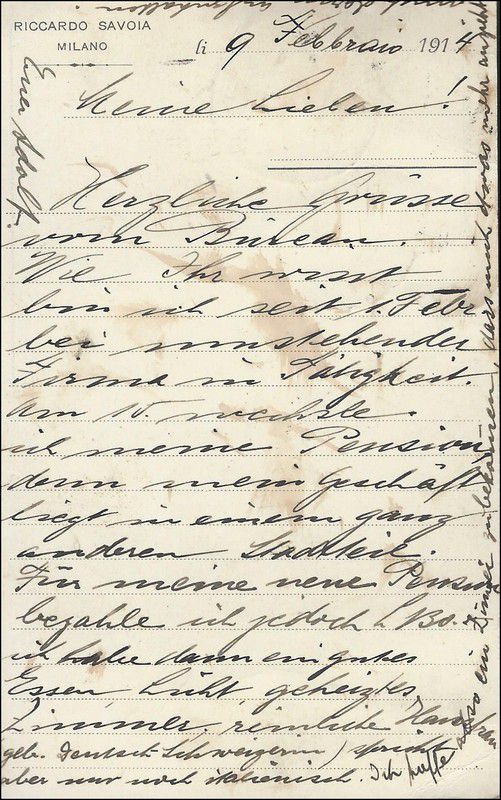 RICCARDO SAVOIA
MILANO
li 9 Febbraio 1914
Meine Lieben!
Herzliche Grüsse
vom Büreau.
Wie Ihr wisst
bin ich seit 1. Febr
bei umstehender
Firma in Tätigkeit.
Am 15. wechsle
ich meine Pension
denn mein Geschäft
liegt in einem ganz
anderen Stadtteil.
Für meine neue Pension
bezahle ich jedoch L
ich habe dann ein gutes
Essen Licht geheiztes
Zimmer, reinliche Hausfrau
geb. Deutsch Schweizerin) spricht
aber nur noch italienisch. Ich hoffe
also ein Zimmer zu bekommen, dass mich etwas mehr
Euer Adolf.